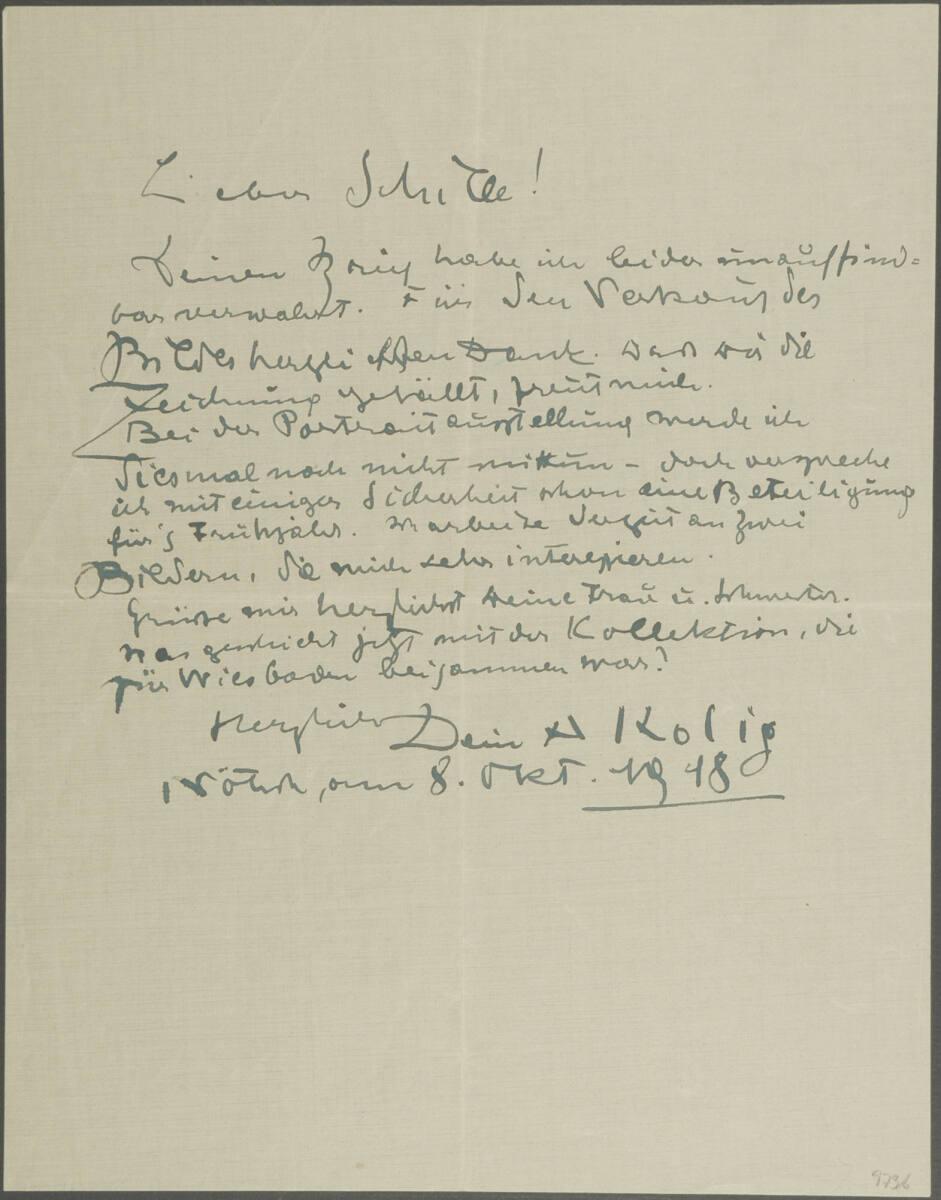 Lieber Schiele!
Deinen Brief habe ich leider unauffind=
bar verwahrt. Für den Verkauf des
Bildes herzlichsten Dank. Dass die
Zeichnung gefällt, freut mich.
Bei der Portraitausstellung werde ich
diesmal noch nicht mittun – doch verspreche
ich mit einiger Sicherheit schon eine Beteiligung
für's Frühjahr. Ich arbeite derzeit an zwei
Bildern, die mich sehr interessieren.
Grüsse mir herzlichst Deine Frau u. Schwester.
Was geschieht jetzt mit der Kollektion, die
für Wiesbaden beisammen war?
Herzlichst Dein A Kolig
Nötsch, am 8. Okt. 1918
9736